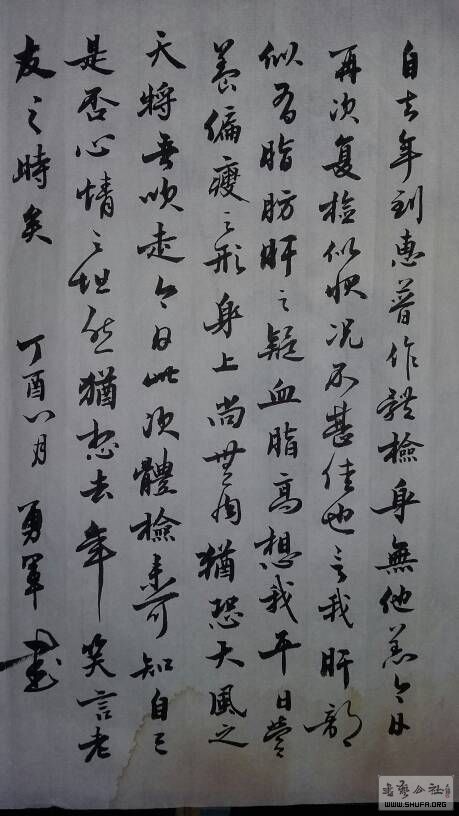 自去年到惠普作體檢身無他恙今日
再次复檢似狀况不甚佳也言我肝部
似有脂肪肝之疑血脂高想我平日營
養偏瘦之形身上尚無肉猶恐大風之
天將吾吹走今日此次體檢未可知自己
是否心情之坦然猶想去年笑言老
友之時矣 丁酉八月 勇軍書
WWW.SHUFA.ORG